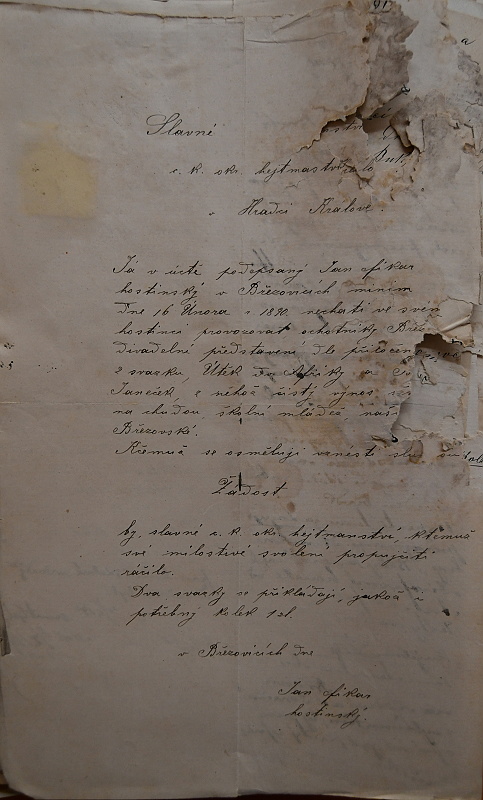 Slavné
c. k. okr. hejtmastvo
v Hradci Králové.
Já v úctě podepsaný Jan Fikar
hostinský v Březovicích míním
dne 16 Února r. 1890. nechati ve svém
hostinci provozovat ochotníky Břez
divadelní představení dle přilože
2 svazku, Útěk do Afriky a
Janeček, z něhož čistý výnos
na chudou školní mládež, naší
Březovské.
Křemuž se osměluji vznésti
Žádost
by slavné c. k. okr. hejtmanství, křemuž
své milostivé svolení propujčiti
ráčilo.
Dva svazky se přikládají, jakož i
potřebný kolek 1 zl.
v Březovicích dne
Jan Fikar
hostinský.